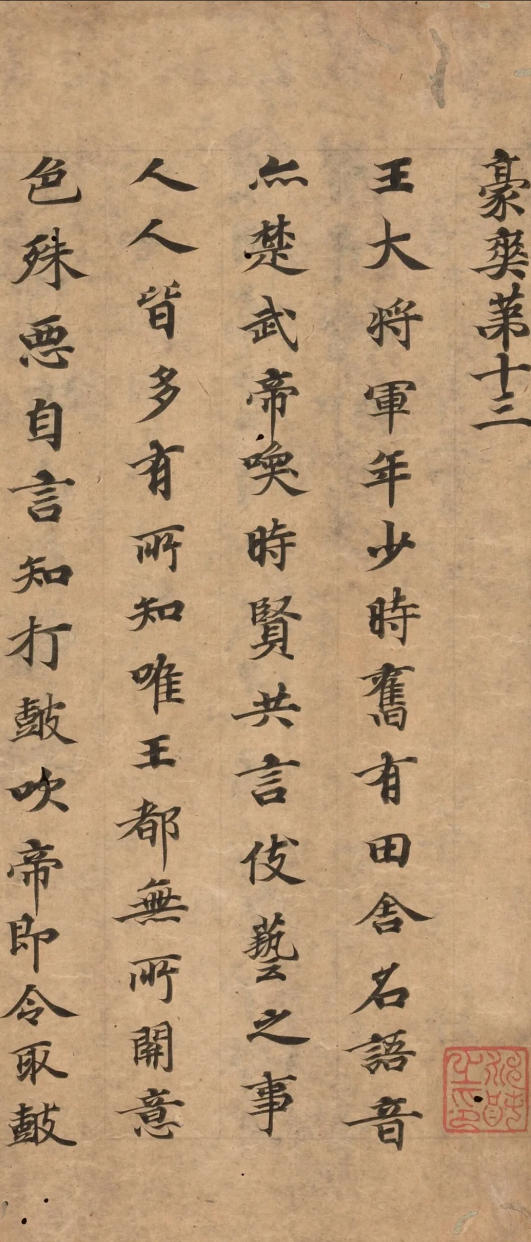 豪爽第十三
王大将軍年少時舊有田舎名語音
亦楚武帝喚時賢共言伎藝之事
人人皆多有所知唯王都無所開意
色殊悪自言知打皷吹帝即令取皷